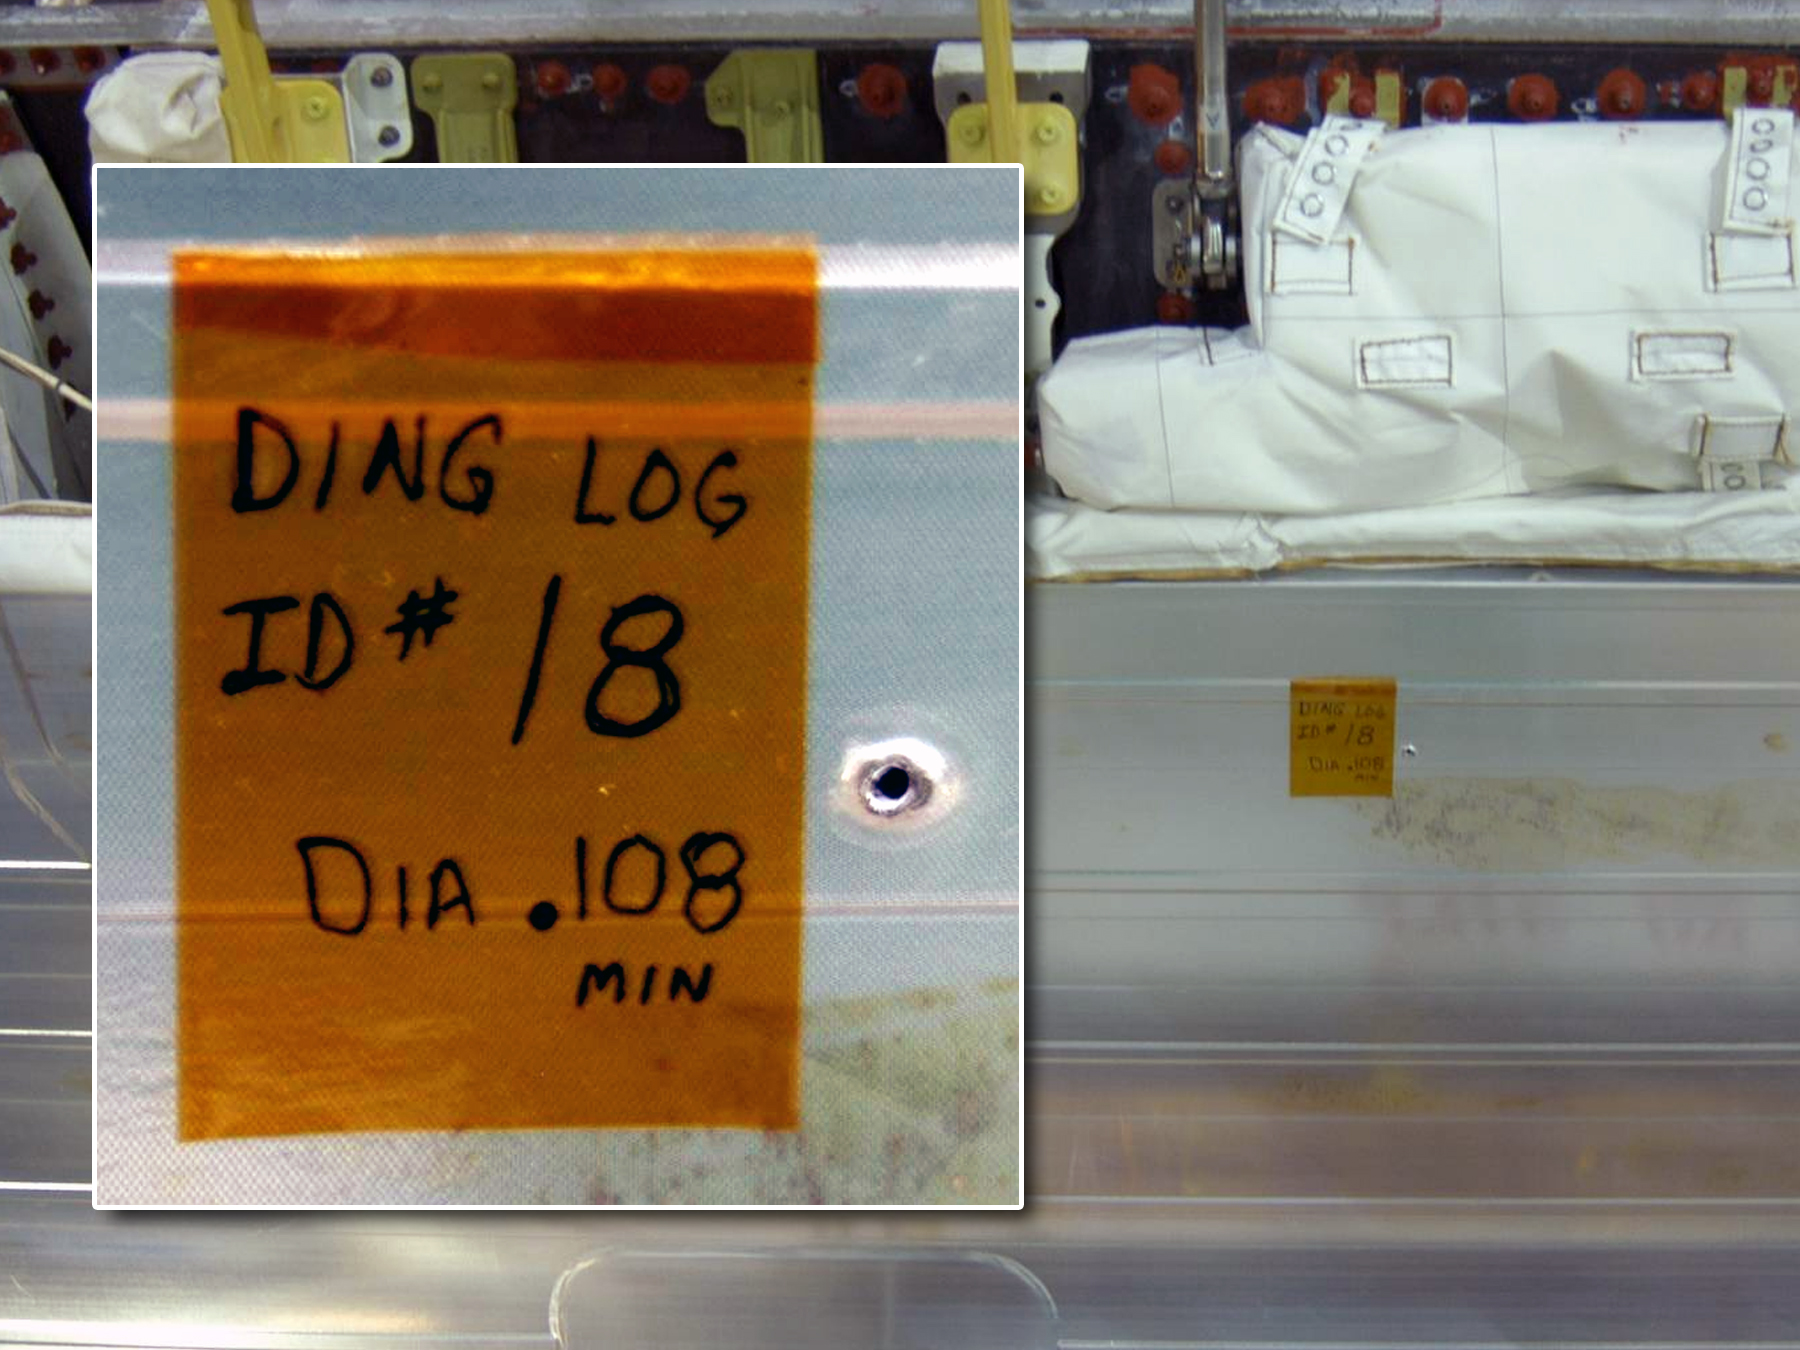 DING LOG
ID# 18
DIA .108
MIN
DING LOG
ID# 18
DIA .108
MIN